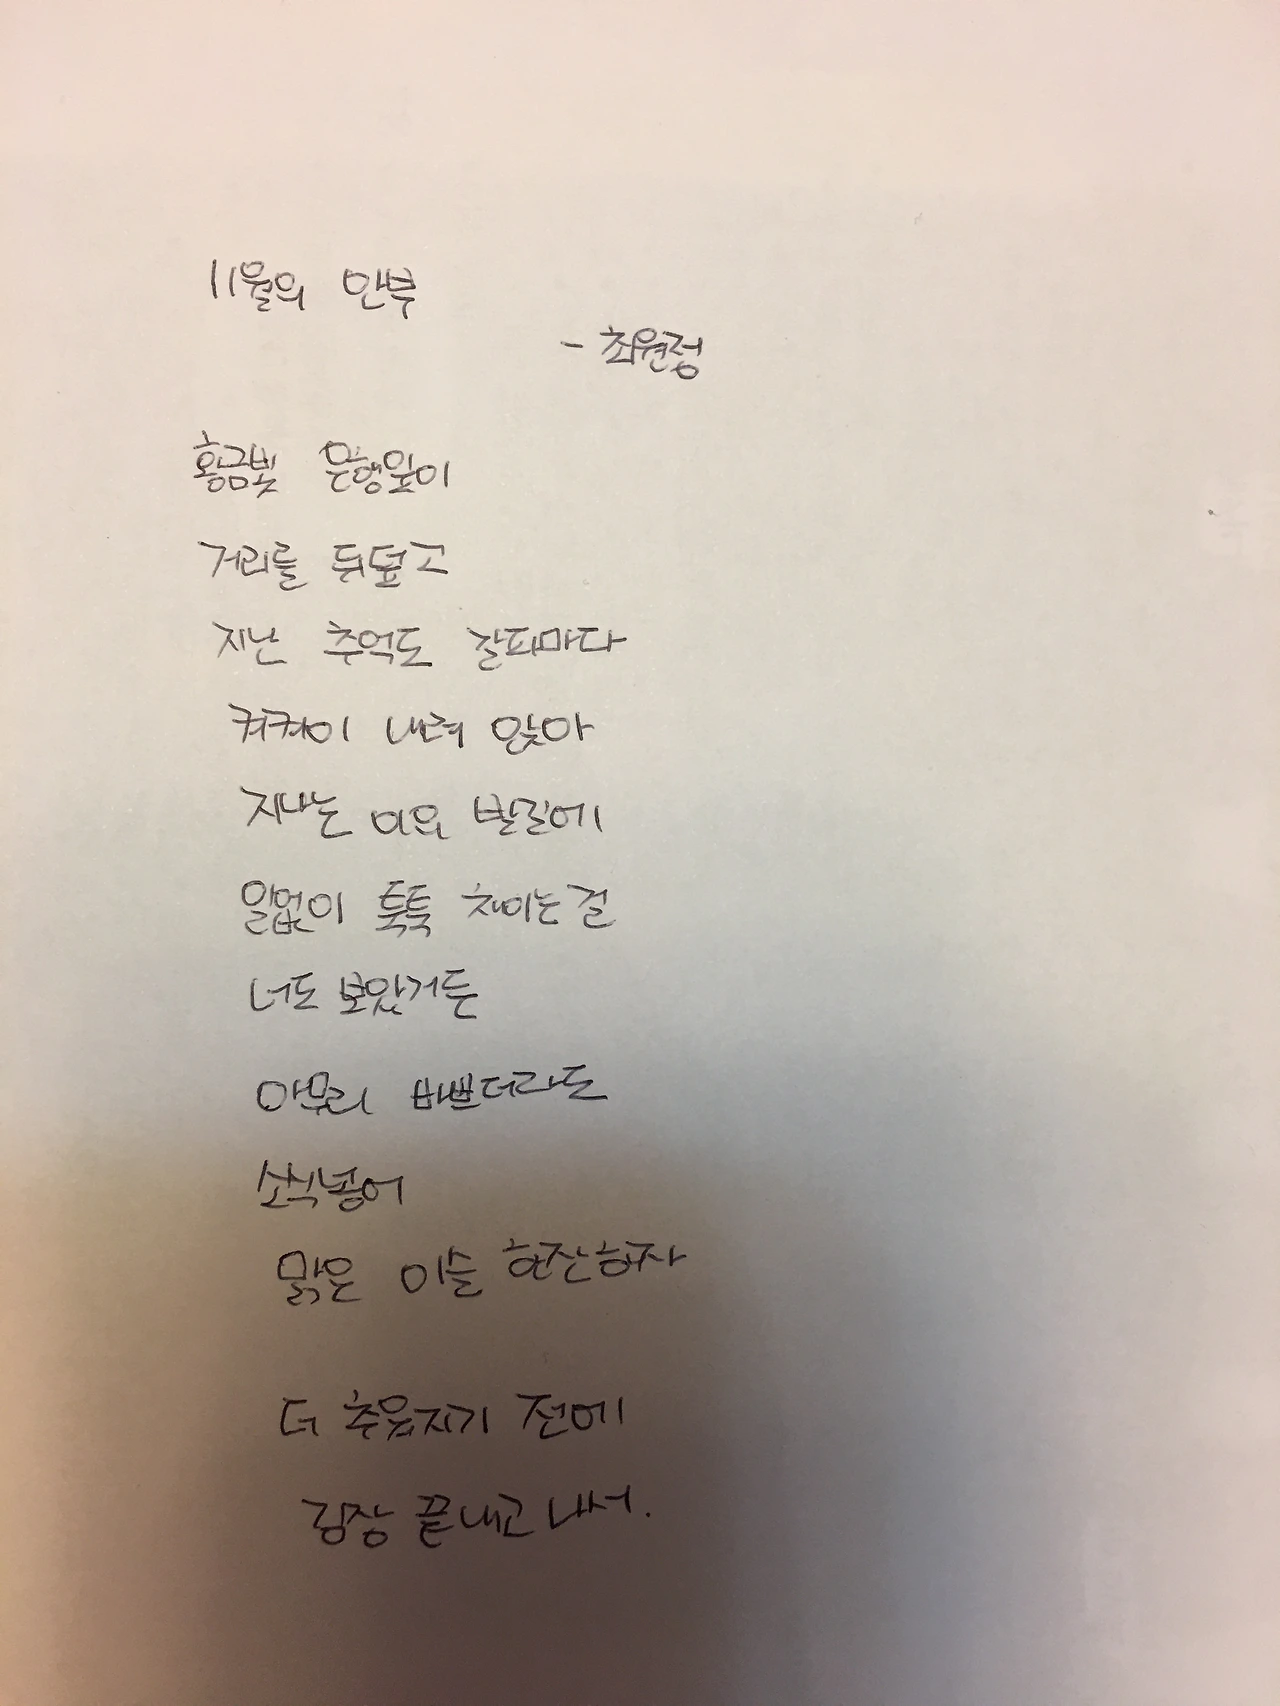 11월의 안부
- 최원정
황금빛 은행잎이
거리를 뒤덮고
지난 추억도 갈피마다
켜켜이 내려 앉아
지나는 이의 발길에
일없이 툭툭 채이는 걸
너도 보았거든
아무리 바쁘더라도
소식넣어
맑은 이슬 한잔하자
더 추워지기 전에
김장 끝내고 나서.